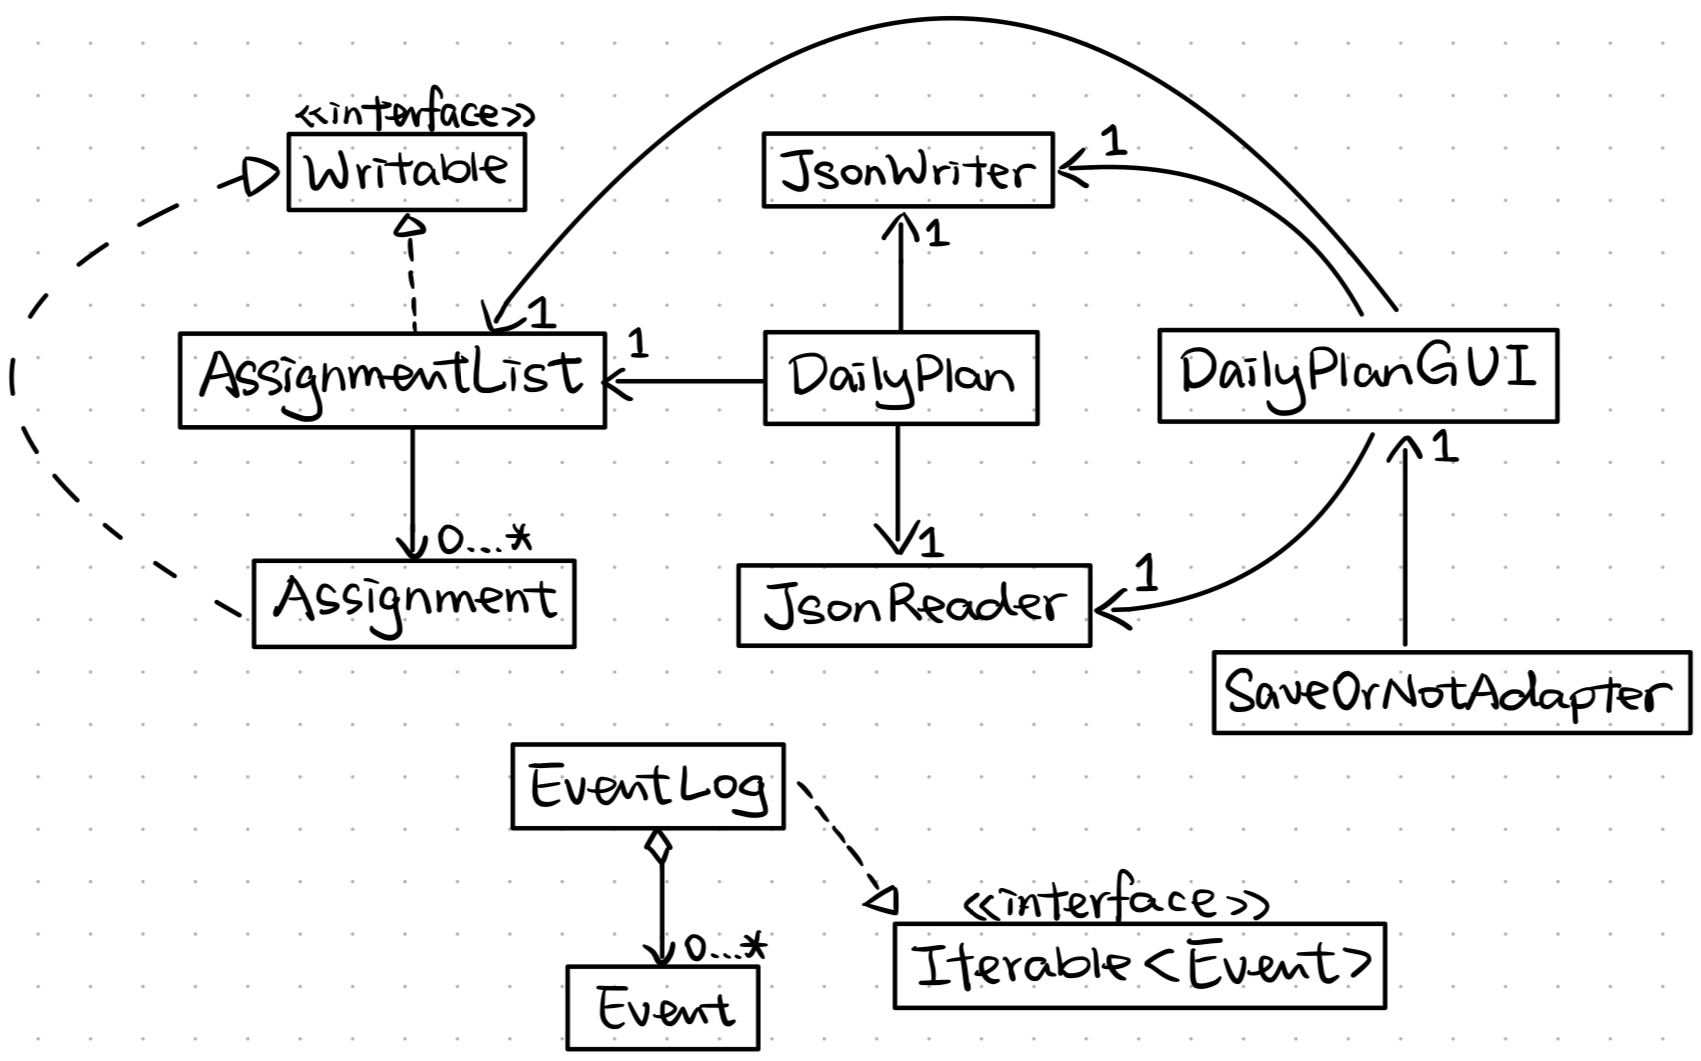 <<interface>>
Writable
JsonWriter
1
1
1
AssignmentList
1
DailyPlan
DailyPlanGUI
1
0...*
1
1
Assignment
JsonReader
SaveOrNotAdapter
EventLog
0...*
Event
<<interface>>
Iterable<Event>